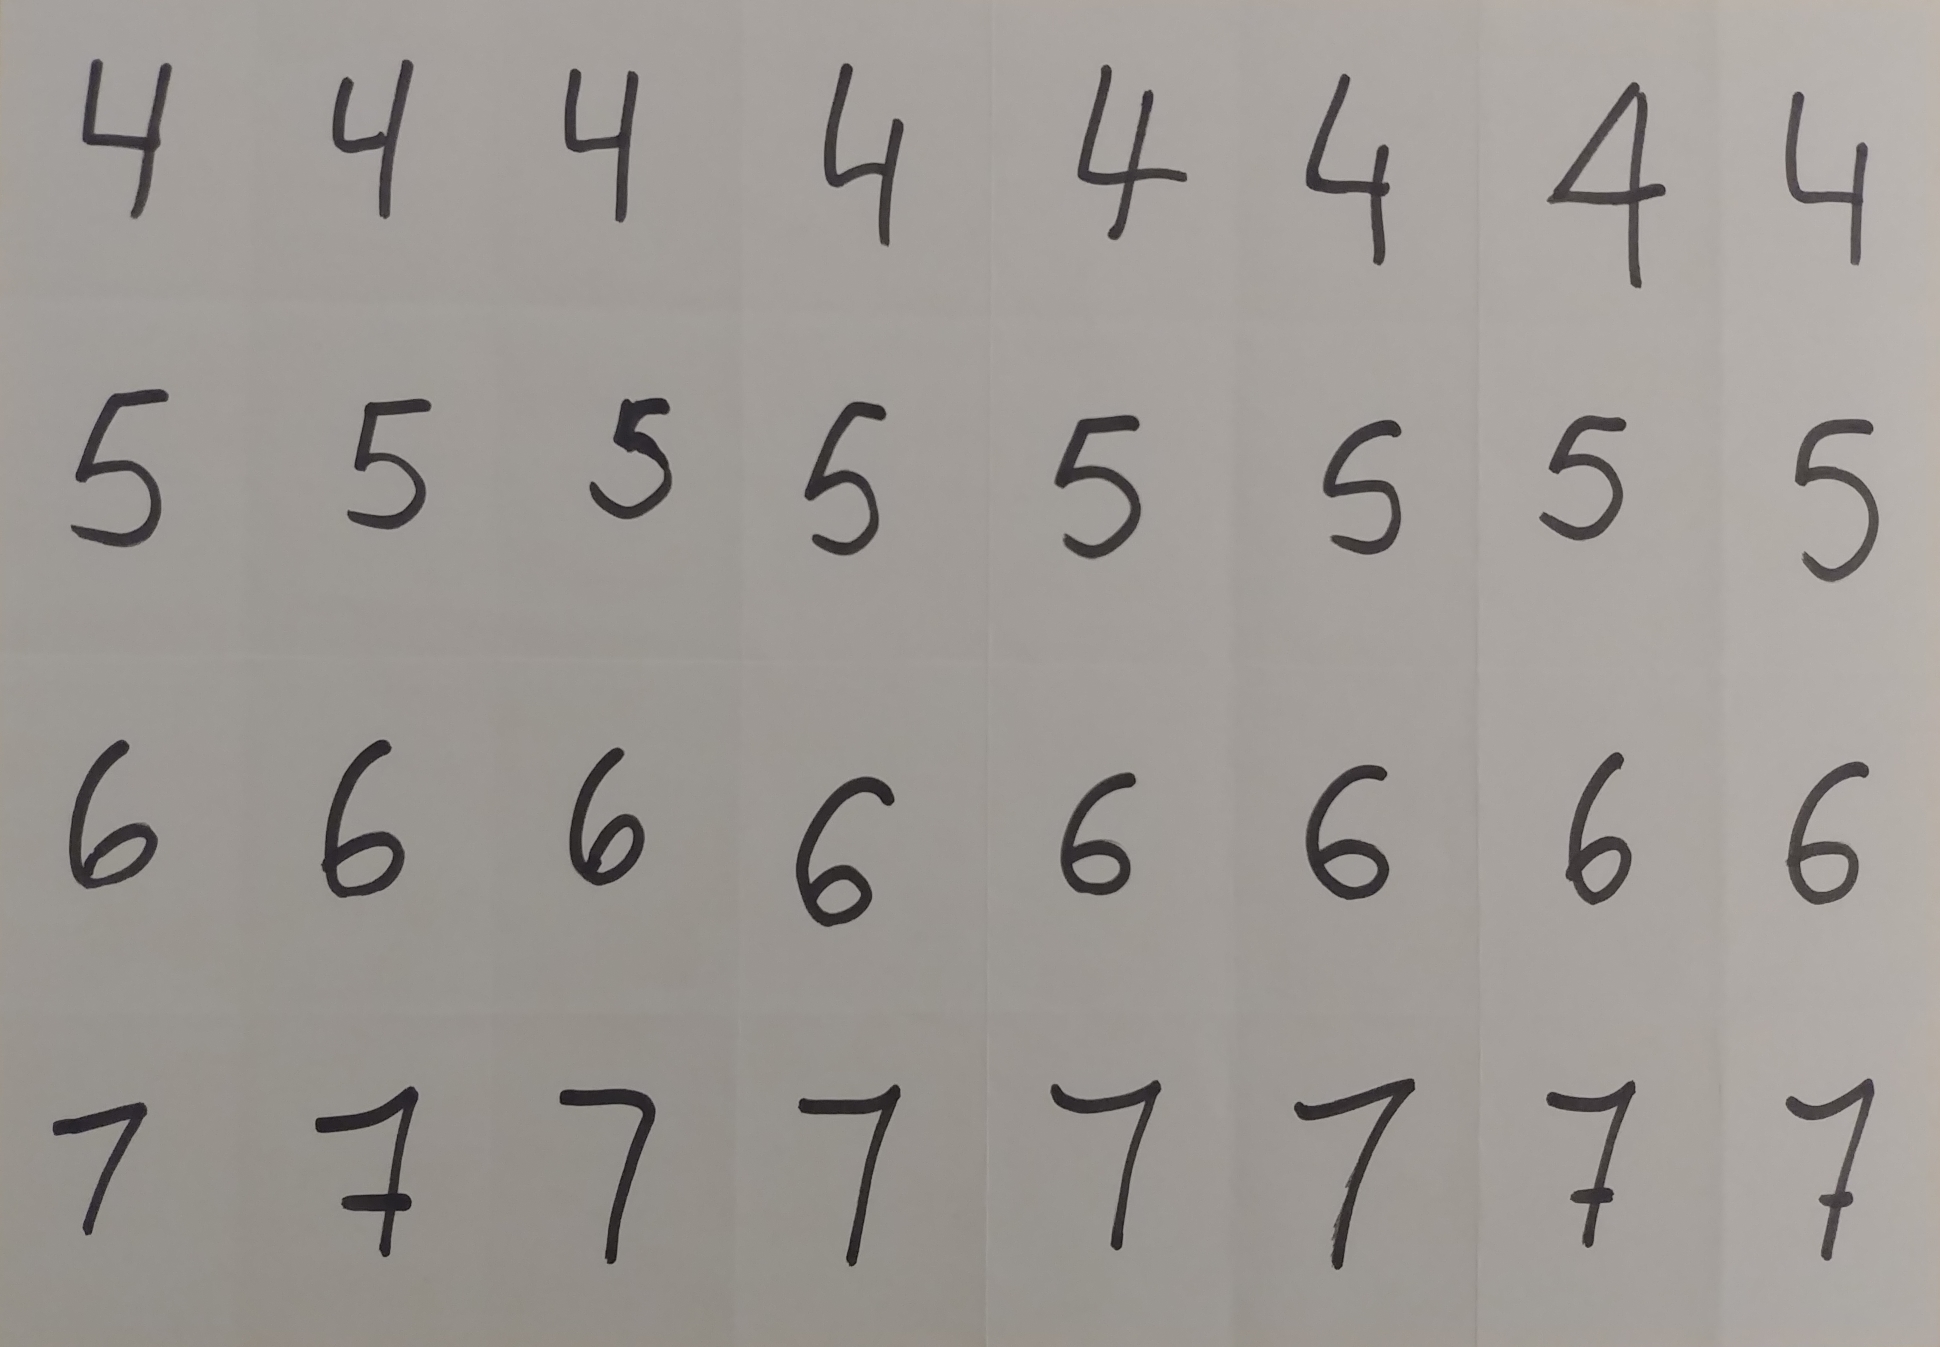 4 4 4 4 4 4 4 4
5 5 5 5 5 5 5 5
6 6 6 6 6 6 6 6
7 7 7 7 7 7 7 7